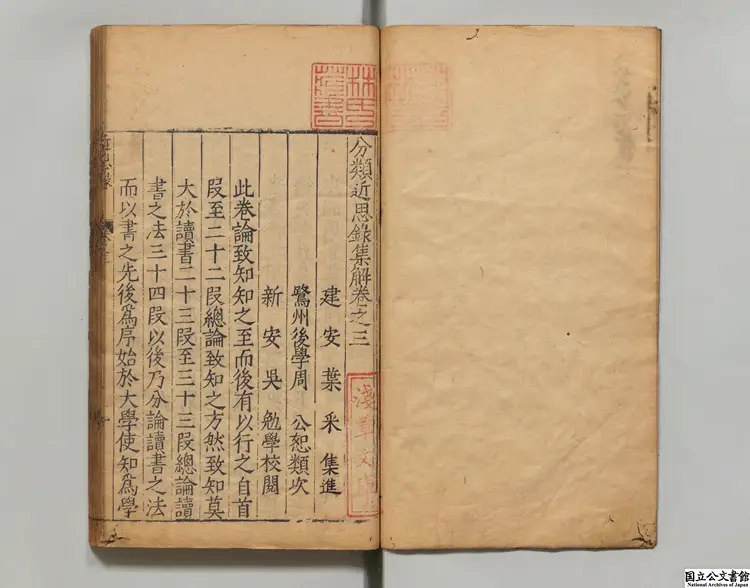 分類近思錄集解卷之三
建安葉采集進
鷺州後學周公恕類次
新安吳勉學校閱
此卷論致知知之至而後有以行之自首
叚至二十二叚總論致知之方然致知莫
大於讀書二十三叚至三十三叚總論讀
書之法三十四叚以後乃分論讀書之法
而以書之先後爲序始於大學使知爲學
林氏
藏書
淺草文庫
近思錄
国立公文書館
National Archives of Japan